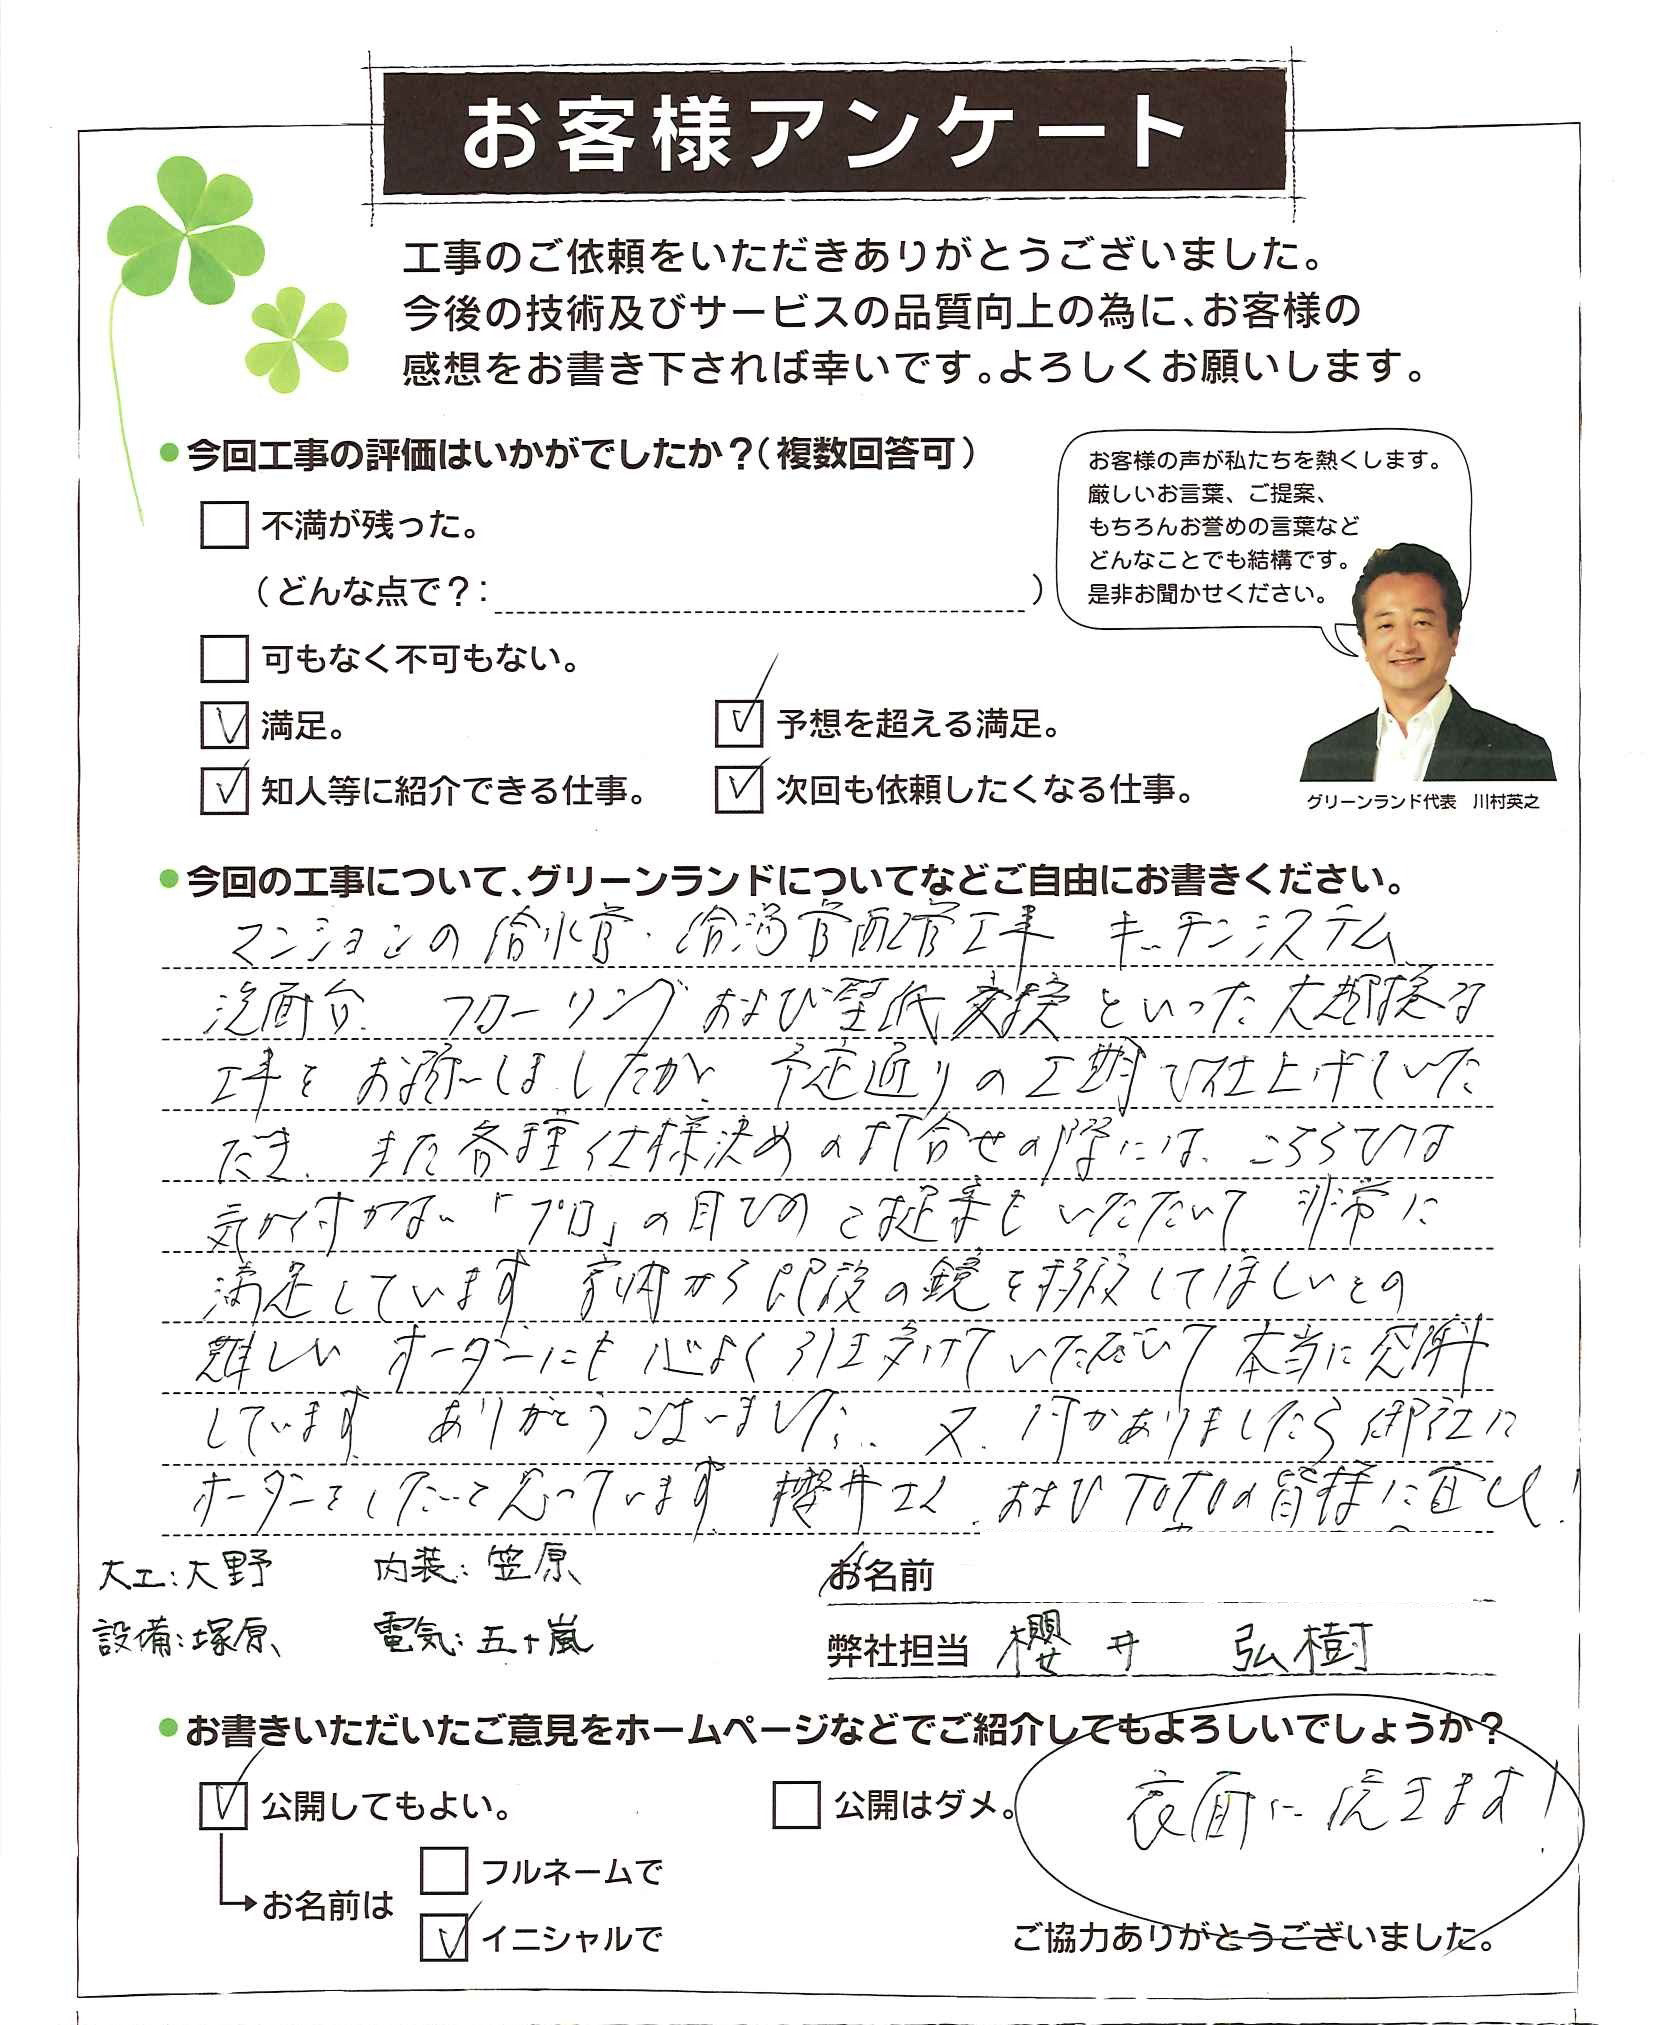 お客様アンケート
工事のご依頼をいただきありがとうございました。
今後の技術及びサービスの品質向上の為に、お客様の
感想をお書き下されば幸いです。よろしくお願いします。
●今回工事の評価はいかがでしたか?(複数回答可)
お客様の声が私たちを熱くします。
厳しいお言葉、ご提案、
もちろんお誉めの言葉など
どんなことでも結構です。
是非お聞かせください。
不満が残った。
(どんな点で?: )
可もなく不可もない。
満足。
予想を超える満足。
知人等に紹介できる仕事。
次回も依頼したくなる仕事。
グリーンランド代表 川村英之
●今回の工事について、グリーンランドについてなどご自由にお書きください。
マンションの給水管・給湯管配管工事 キッチンシステム
洗面台、フローリングおよび壁紙交換といった大規模な
工事をお願いしましたが、予定通りの工期で仕上げていた
だき、また各種仕様決めの打合せの際には、こちらでは
気が付かない「プロ」の目でのご提案もいただいて 非常に
満足しています 家内から既設の鏡を移設してほしいとの
難しい オーダーにも 心よく引き受けて いただいて 本当に感謝
しています。ありがとうございました。又、何かありましたら御社に
オーダーをしたいと思っています。櫻井さん、およびTOTOの皆様に宜しく!
大工:大野 内装:笠原
設備:塚原 電気:五十嵐
お名前
弊社担当 櫻井 弘樹
●お書きいただいたご意見をホームページなどでご紹介してもよろしいでしょうか?
公開してもよい。
公開はダメ。
裏面に続きます!
お名前は
フルネームで
イニシャルで
ご協力ありがとうございました。